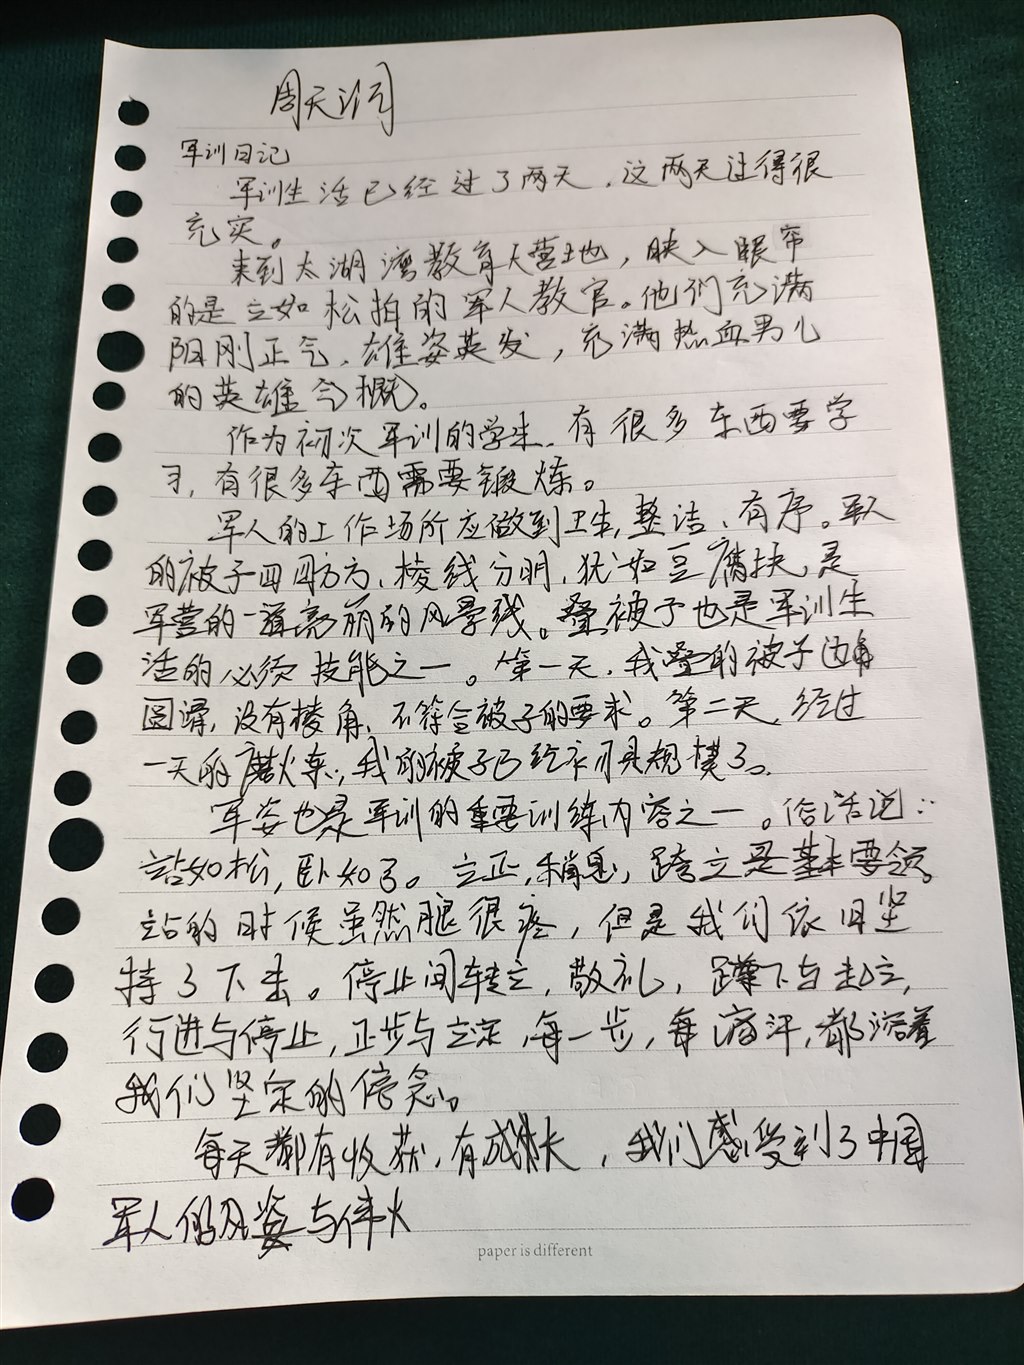 周天词
军训日记
军训生活已经过了两天，这两天过得很
充实。
来到太湖湾教育大营地，映入眼帘
的是立如松柏的军人教官。他们充满
阳刚正气、雄姿英发，充满热血男儿
的英雄气概。
作为初次军训的学生，有很多东西要学
习，有很多东西需要锻炼。
军人的工作场所应做到卫生，整洁、有序。军人
的被子四四方方、棱线分明，犹如豆腐块，是
军营的一道亮丽的风景线。叠被子也是军训生
活的必须技能之一。第一天，我叠的被子边角
圆滑，没有棱角，不符合被子的要求。第二天，经过
一天的磨炼，我的被子已经初具规模了。
军姿也是军训的重要训练内容之一。俗话说：
站如松，卧如弓。立正，稍息，跨立是基本要领。
站的时候虽然腿很疼，但是我们依旧坚
持了下去。停止间转立，敬礼，蹲下与起立，
行进与停止，正步与立定，每一步，每滴汗，都沿着
我们坚定的信念。
每天都有收获，有成长，我们感受到了中国
军人的风姿与伟大
paper is different